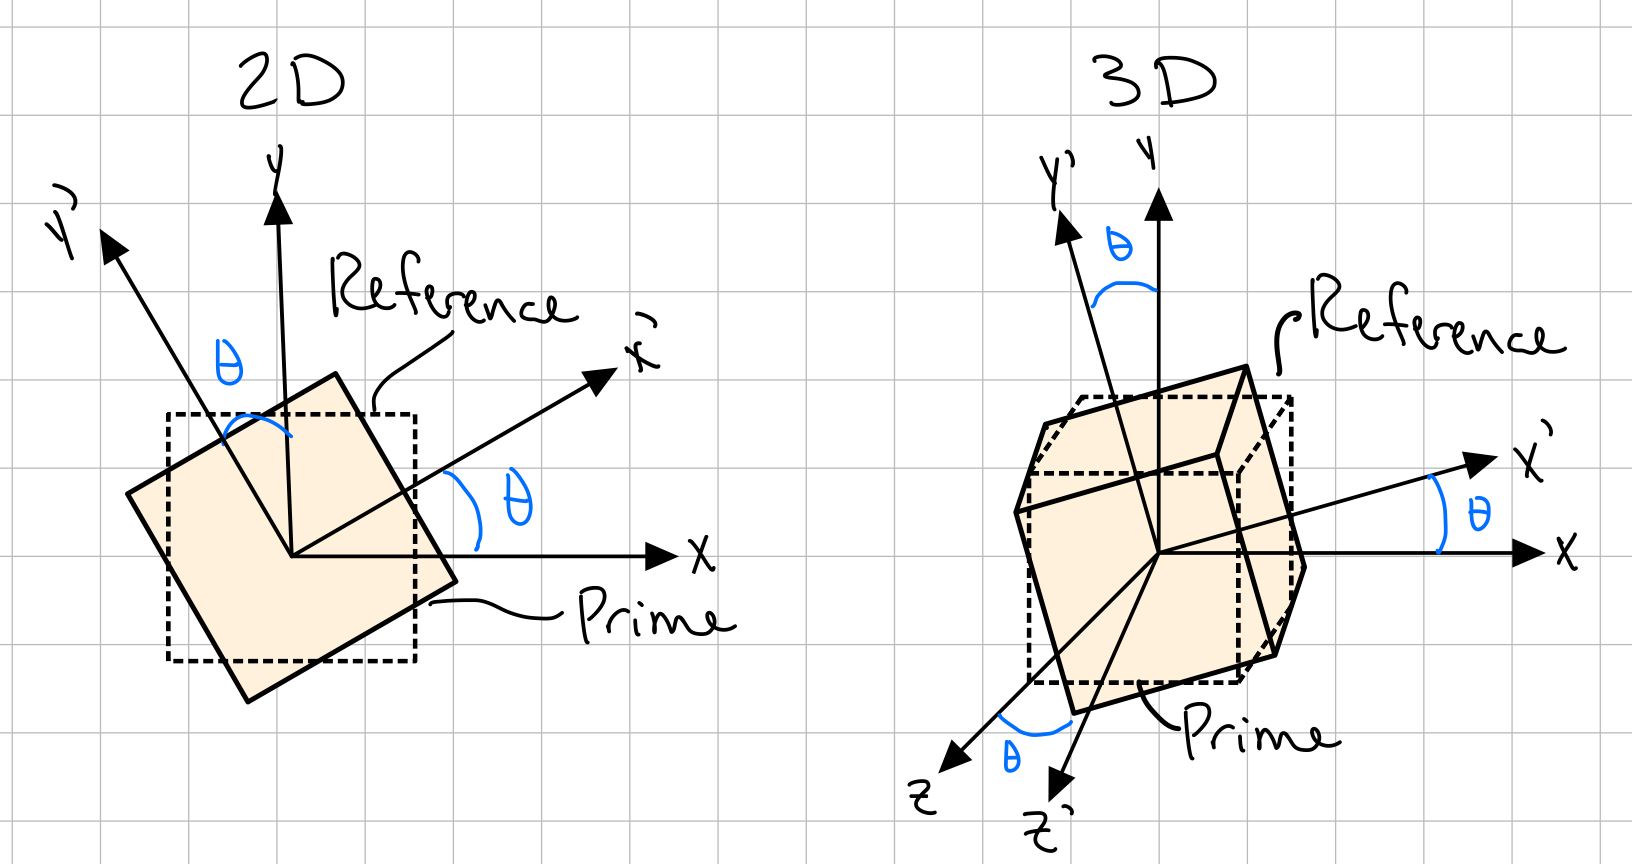 2D
y
y'
Reference
x'
θ
θ
x
Prime
3D
y'
y
θ
Reference
x'
θ
x
Prime
θ
z
z'